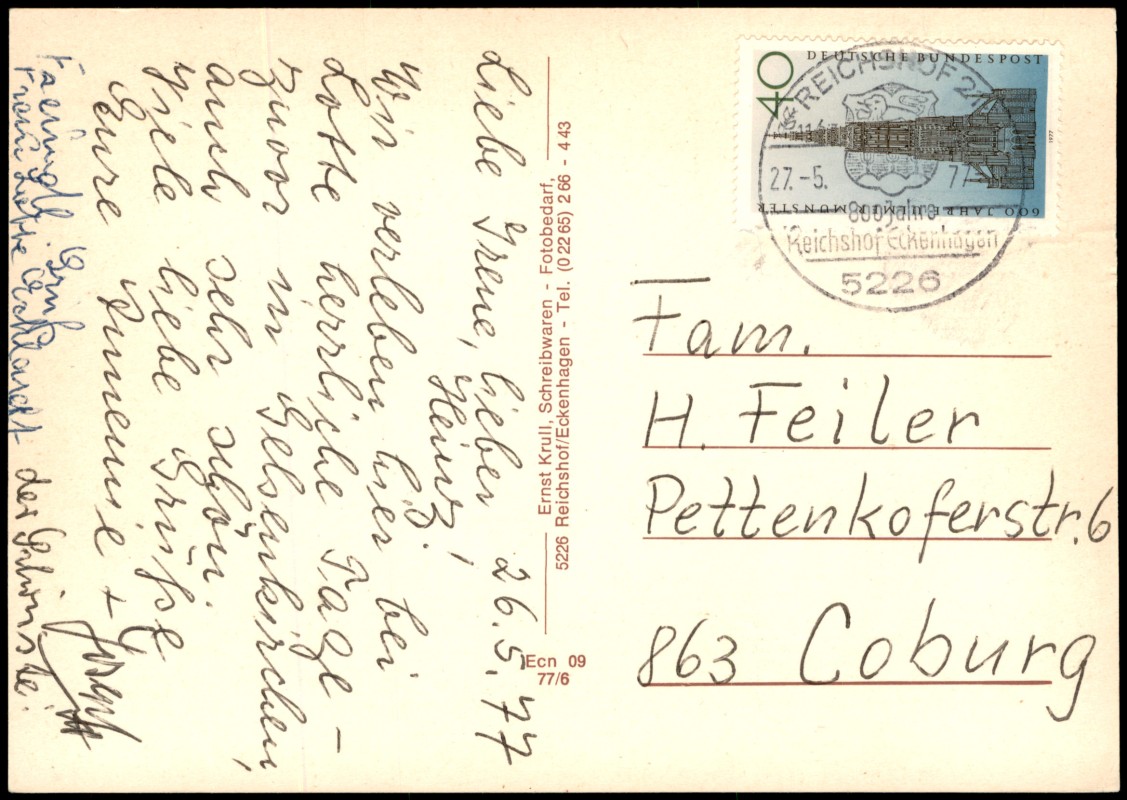 26.5.77
Liebe Irene, lieber
Heinz!
Wir verleben hier bei
Lotte herrliche Tage –
zuvor in Gelsenkirchen,
auch sehr schön.
Viele liebe Grüße
Eure Annemie +
Ernst Krull, Schreibwaren - Fotobedarf,
5226 Reichshof/Eckenhagen - Tel. (0 22 65) 2 66 - 4 43
Ecn 09
77/6
DEUTSCHE BUNDESPOST
40
600 JAHRE ULMER MÜNSTER
1977
REICHSHOF 21
27.-5. 77
800 Jahre
Reichshof Eckenhagen
5226
Fam.
H. Feiler
Pettenkoferstr. 6
863 Coburg